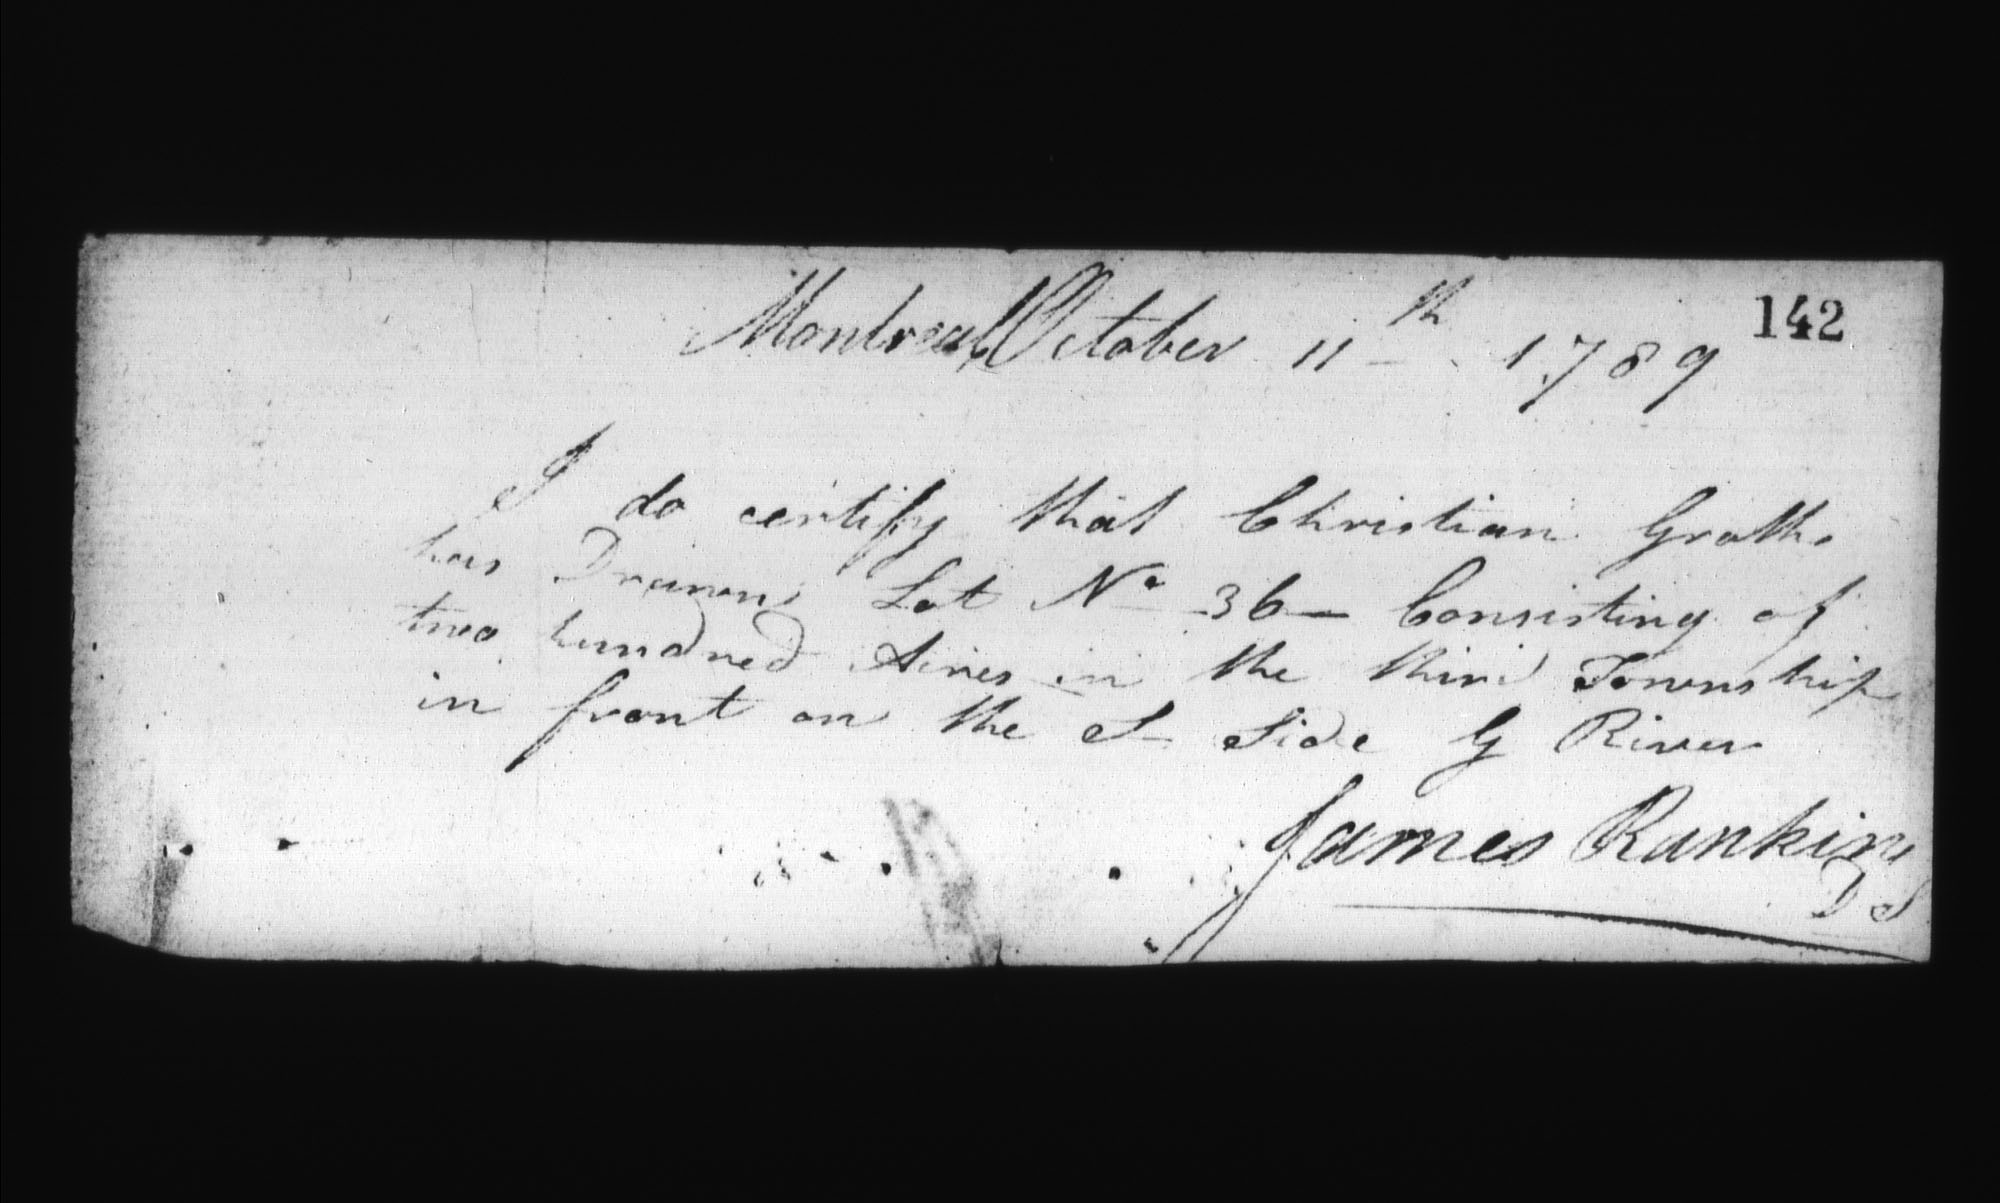 142
Montreal October 11th 1789
I do certify that Christian Groth
has Drawn Lot No 36 Consisting of
two hundred Acres in the third Township
in front on the S Side G River
James Rankin
D S